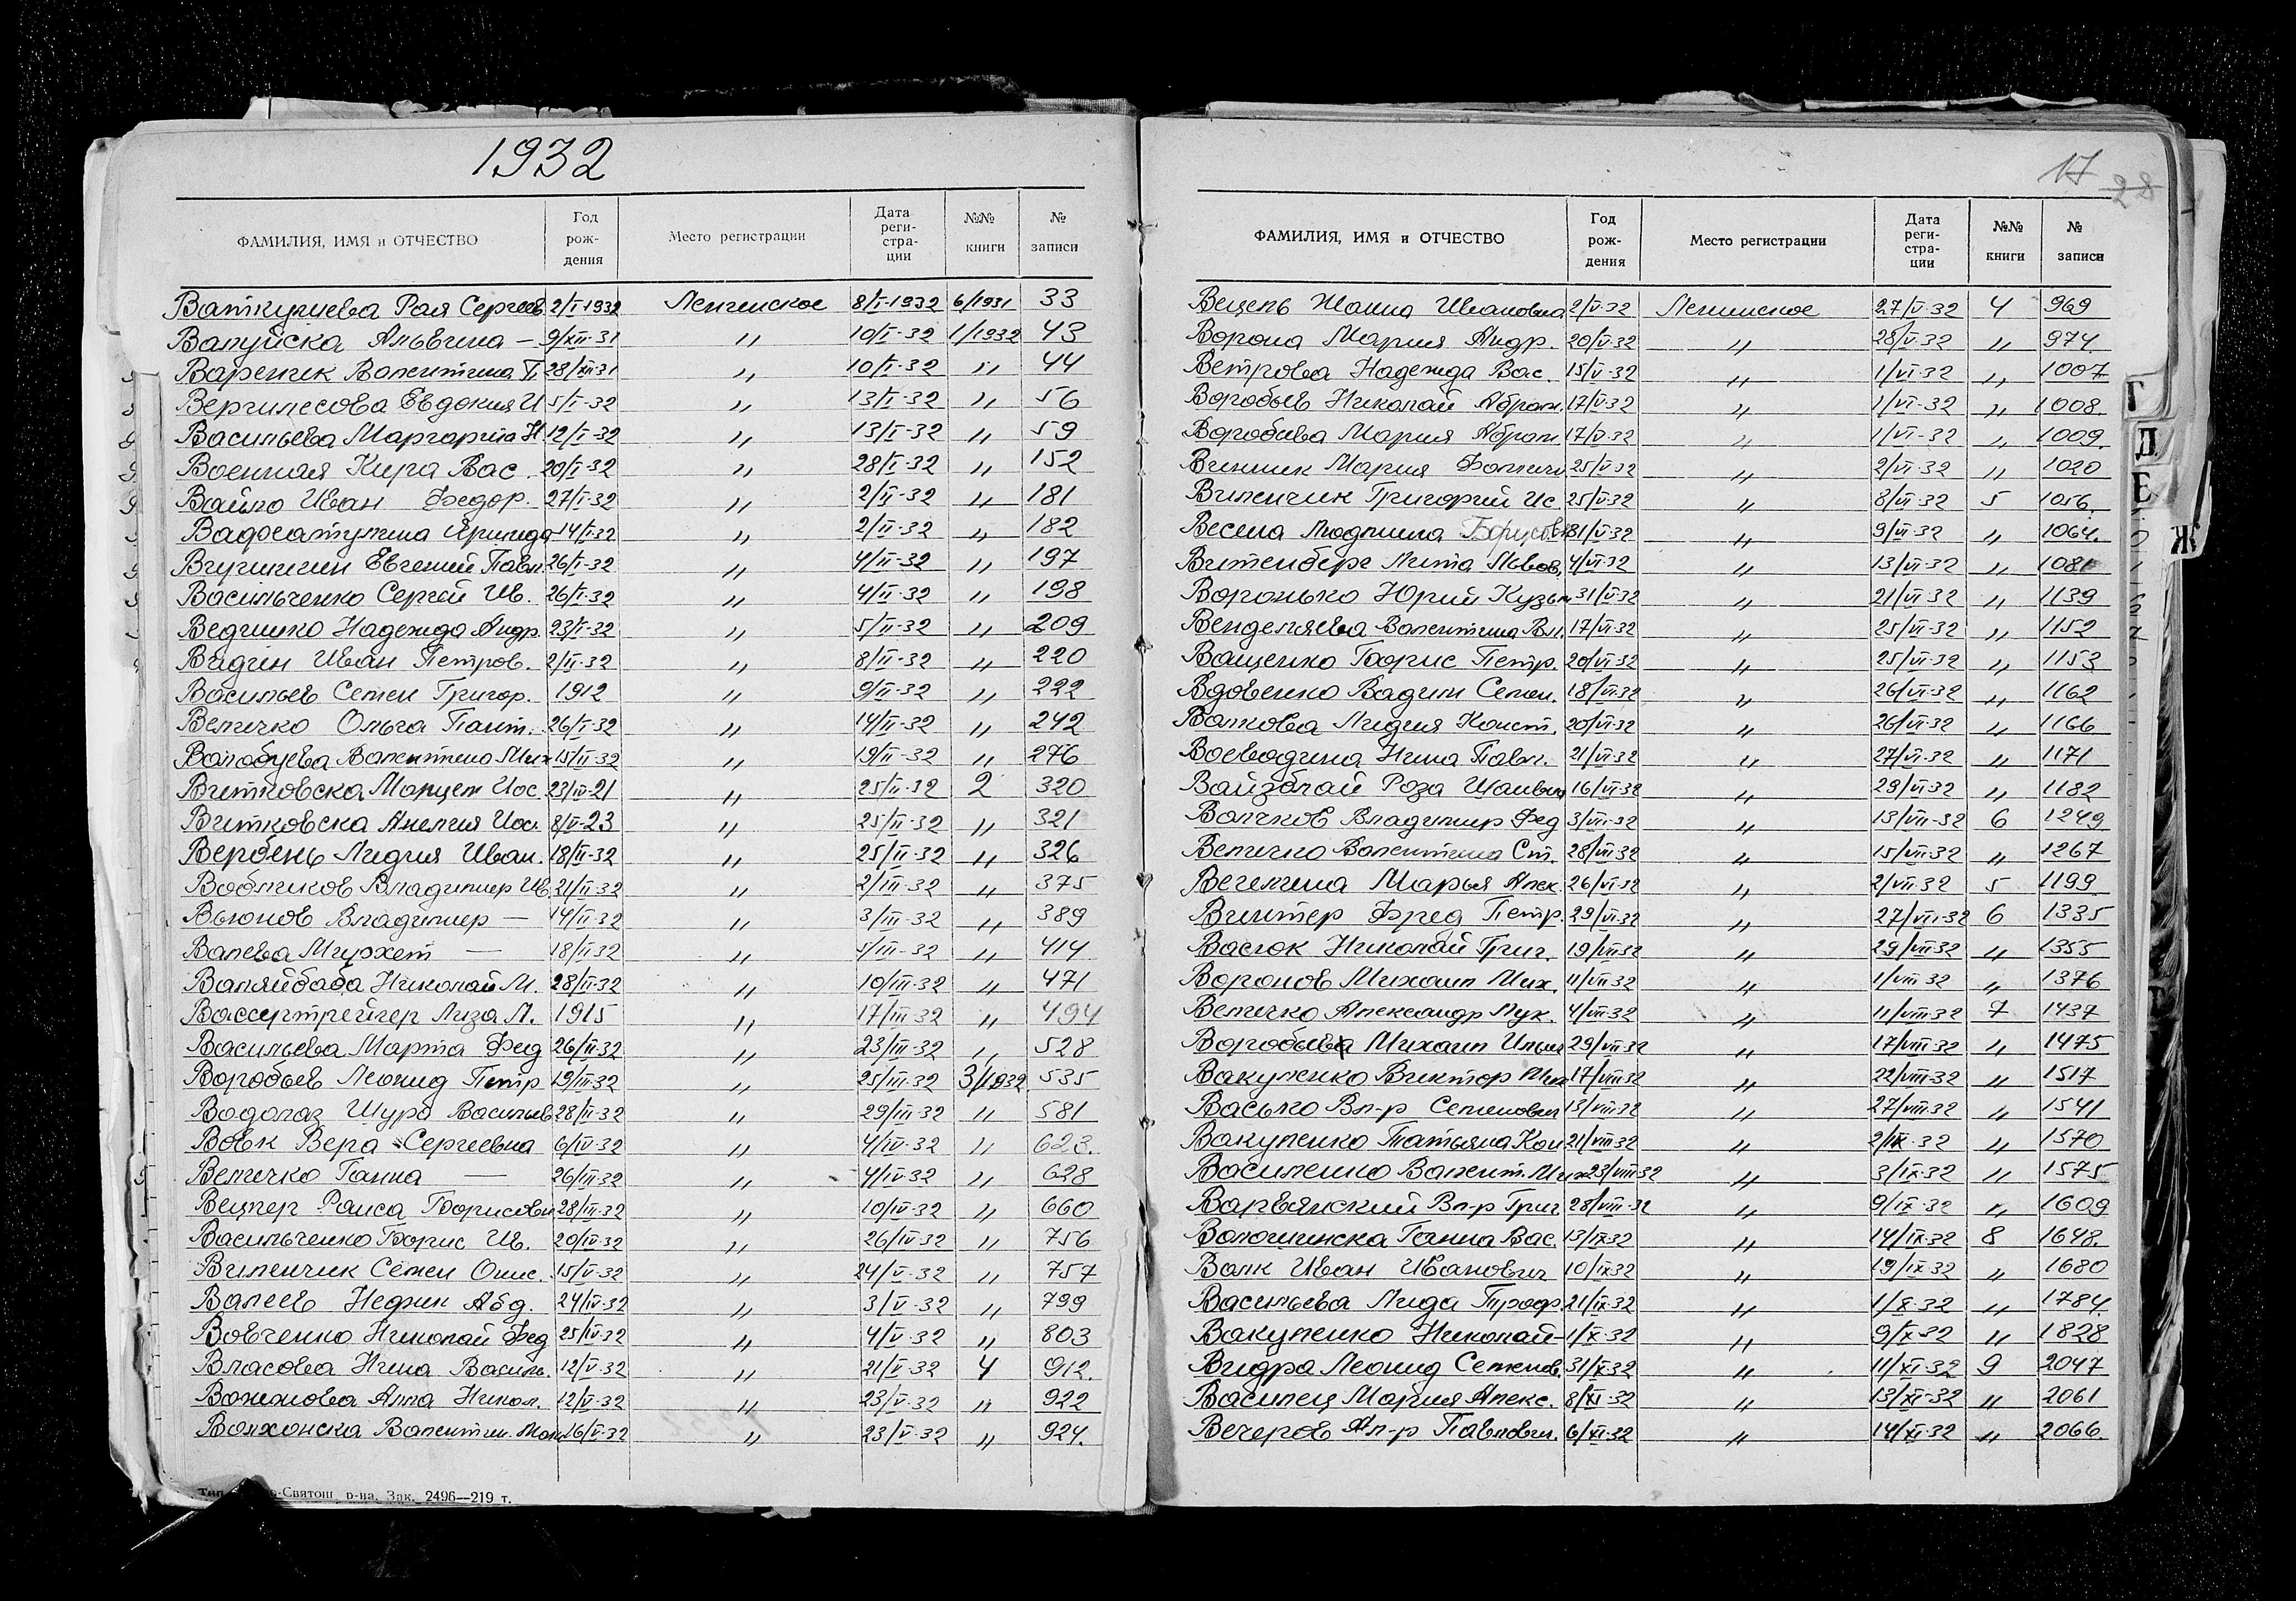 1932
ФАМИЛИЯ, ИМЯ и ОТЧЕСТВО Год рождения Место регистрации Дата регистрации №№ книги № записи
Рая Сергеев 2/I-1932 Ленинское 8/I-1932 6/1931 33
Валуйска Альвина — 9/XII-31 〃 10/I-32 1/1932 43
Вареник Валентина П. 28/XII-31 〃 10/I-32 〃 44
Вергилесова Евдокия И 5/I-32 〃 13/I-32 〃 56
Васильева Маргарита Н 12/I-32 〃 13/I-32 〃 59
Военная Кира Вас. 20/I-32 〃 28/I-32 〃 152
Вайло Иван Федор. 27/I-32 〃 2/II-32 〃 181
14/I-32 〃 2/II-32 〃 182
Евгений Павл. 26/I-32 〃 4/II-32 〃 197
Васильченко Сергей Ив. 26/I-32 〃 4/II-32 〃 198
Надежда Андр. 23/I-32 〃 5/II-32 〃 209
Видин Иван Петров. 2/II-32 〃 8/II-32 〃 220
Васильев Семен Григор. 1912 〃 9/II-32 〃 222
Величко Ольга Пант. 26/I-32 〃 14/II-32 〃 242
Волобуева Валентина Мих 15/II-32 〃 19/II-32 〃 276
Витковска Марцел Иос. 23/III-21 〃 25/II-32 2 320
Витковска Анелия Иос. 8/V-23 〃 25/II-32 〃 321
Вербень Лидия Иван. 18/II-32 〃 25/II-32 〃 326
Вобликов Владимир Ив. 21/II-32 〃 2/III-32 〃 375
Вьюнов Владимир — 14/II-32 〃 3/III-32 〃 389
Валева — 18/II-32 〃 5/III-32 〃 414
Валяйбаба Николай М. 28/II-32 〃 10/III-32 〃 471
Вассертрейгер Лиза Л. 1915 〃 17/III-32 〃 494
Васильева Марта Фед 26/II-32 〃 23/III-32 〃 528
Воробьев Леонид Петр 19/III-32 〃 25/III-32 3/1932 535
Водолаз Шура Васильев 28/II-32 〃 29/III-32 〃 581
Вовк Вера Сергеевна 6/IV-32 〃 4/IV-32 〃 623.
Величко Ганна — 26/III-32 〃 4/IV-32 〃 628
Вецпер Раиса Борисовн 28/III-32 〃 10/IV-32 〃 660
Васильченко Борис Ив. 20/IV-32 〃 26/IV-32 〃 756
Виленчик Семен Онис. 15/IV-32 〃 24/V-32 〃 757
Валеев Абд. 24/IV-32 〃 3/V-32 〃 799
Вовченко Николай Фед 25/IV-32 〃 4/V-32 〃 803
Власова Нина Василь. 12/V-32 〃 21/V-32 4 912.
Анна Никол. 12/V-32 〃 23/V-32 〃 922
Волхонска Валентин. 16/V-32 〃 23/V-32 〃 924.
Святош р-на. Зак. 2496—219 т.
17 28
ФАМИЛИЯ, ИМЯ и ОТЧЕСТВО Год рождения Место регистрации Дата регистрации №№ книги № записи
Вецель Жанна Ивановна 2/V-32 Ленинское 27/V-32 4 969
Ворона Мария Андр. 20/V-32 〃 28/V-32 〃 974.
Ветрова Надежда Вас. 15/V-32 〃 1/VI-32 〃 1007
Воробьев Николай Абрам. 17/V-32 〃 1/VI-32 〃 1008.
Воробьева Мария Абрам 17/V-32 〃 1/VI-32 〃 1009.
Винник Мария 25/V-32 〃 2/VI-32 〃 1020
Виленчик Григорий Ис. 25/V-32 〃 8/VI-32 5 1056.
Весела Людмила Борисовн 31/V-32 〃 9/VI-32 〃 1064.
Витенберг Лита Львов. 4/VI-32 〃 13/VI-32 〃 1081
Воронько Юрий Кузьм 31/V-32 〃 21/VI-32 〃 1139
Венделяева Валентина Вл. 17/VI-32 〃 25/VI-32 〃 1152
Ващенко Борис Петр. 20/VI-32 〃 25/VI-32 〃 1153
Вдовенко Вадим Семен. 18/VI-32 〃 26/VI-32 〃 1162
Волкова Лидия Конст. 20/VI-32 〃 26/VI-32 〃 1166
Воеводина Нина Павл. 21/VI-32 〃 27/VI-32 〃 1171
Вайзблай Роза 16/VI-32 〃 29/VI-32 〃 1182
Волчков Владимир Фед 3/VII-32 〃 13/VII-32 6 1249
Величко Валентина Ст. 28/VI-32 〃 15/VII-32 〃 1267
Вегелина Марья Алек. 26/VI-32 〃 2/VII-32 5 1199
Винтер Фред Петр. 29/VI-32 〃 27/VII-32 6 1335
Васюк Николай Григ. 19/VII-32 〃 29/VII-32 〃 1355
Воронов Михаил Мих. 11/VII-32 〃 1/VIII-32 〃 1376
Величко Александр Лук. 4/VII-32 〃 11/VIII-32 7 1437
Воробьев Михаил Ильич 29/VII-32 〃 17/VIII-32 〃 1475
Вакуленко Виктор Мих 17/VIII-32 〃 22/VIII-32 〃 1517
Васько Вл-р Семенович 13/VIII-32 〃 27/VIII-32 〃 1541
Вакуленко Татьяна Кон 21/VIII-32 〃 2/IX-32 〃 1570
Василенко Валент. Мих 23/VIII-32 〃 3/IX-32 〃 1575
Варвянский Вл-р Григ 28/VIII-32 〃 9/IX-32 〃 1609
Волошинска Ганна Вас. 13/IX-32 〃 14/IX-32 8 1648.
Волк Иван Иванович 10/IX-32 〃 19/IX-32 〃 1680
Васильева Лида Троф 21/IX-32 〃 1/X-32 〃 1784.
Вакуленко Николай — 1/X-32 〃 9/X-32 〃 1828
Видра Леонид Семенов. 31/X-32 〃 11/XI-32 9 2047
Василец Мария Алекс. 8/XI-32 〃 13/XI-32 〃 2061
Вечеров Ал-р Павлович. 6/XI-32 〃 14/XI-32 〃 2066.
Г
Д
Е
Ж